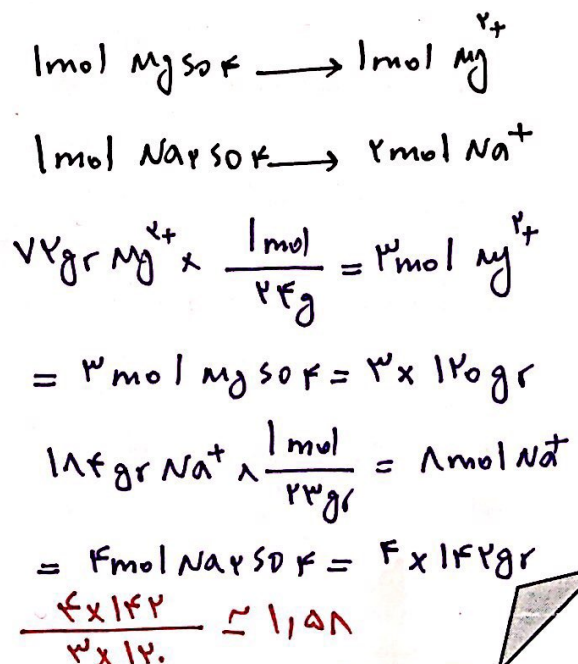 1mol MgSO۴ → 1mol Mg²⁺
1mol Na۲SO۴ → ۲mol Na⁺
۷۲gr Mg²⁺ × 1mol/۲۴g = ۳mol Mg²⁺
= ۳mol MgSO۴ = ۳ × ۱۲۰gr
۱۸۴gr Na⁺ × 1mol/۲۳gr = ۸mol Na⁺
= ۴mol Na۲SO۴ = ۴ × ۱۴۲gr
۴×۱۴۲/۳×۱۲۰ ≃ ۱,۵۸